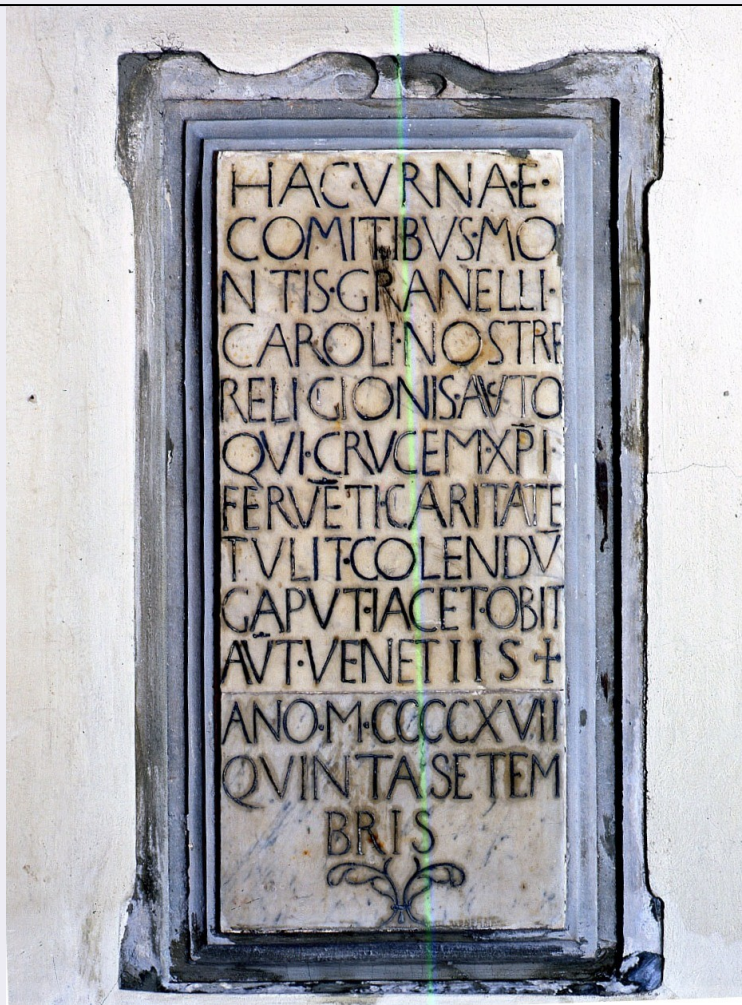 HAC·VRNAE·
COMITIBVS·MO
NTIS·GRANELLI·
CAROLI·NOSTRE
RELIGIONIS·AVTO
QVI·CRVCEM·XP̄I·
FERVĒTI·CARITATE
TVLIT·COLENDV̄
CAPVT·IACET·OBIT
AV̄T·VENETIIS +
ANO·M·CCCCXVII
QVINTA·SETEM
BRIS